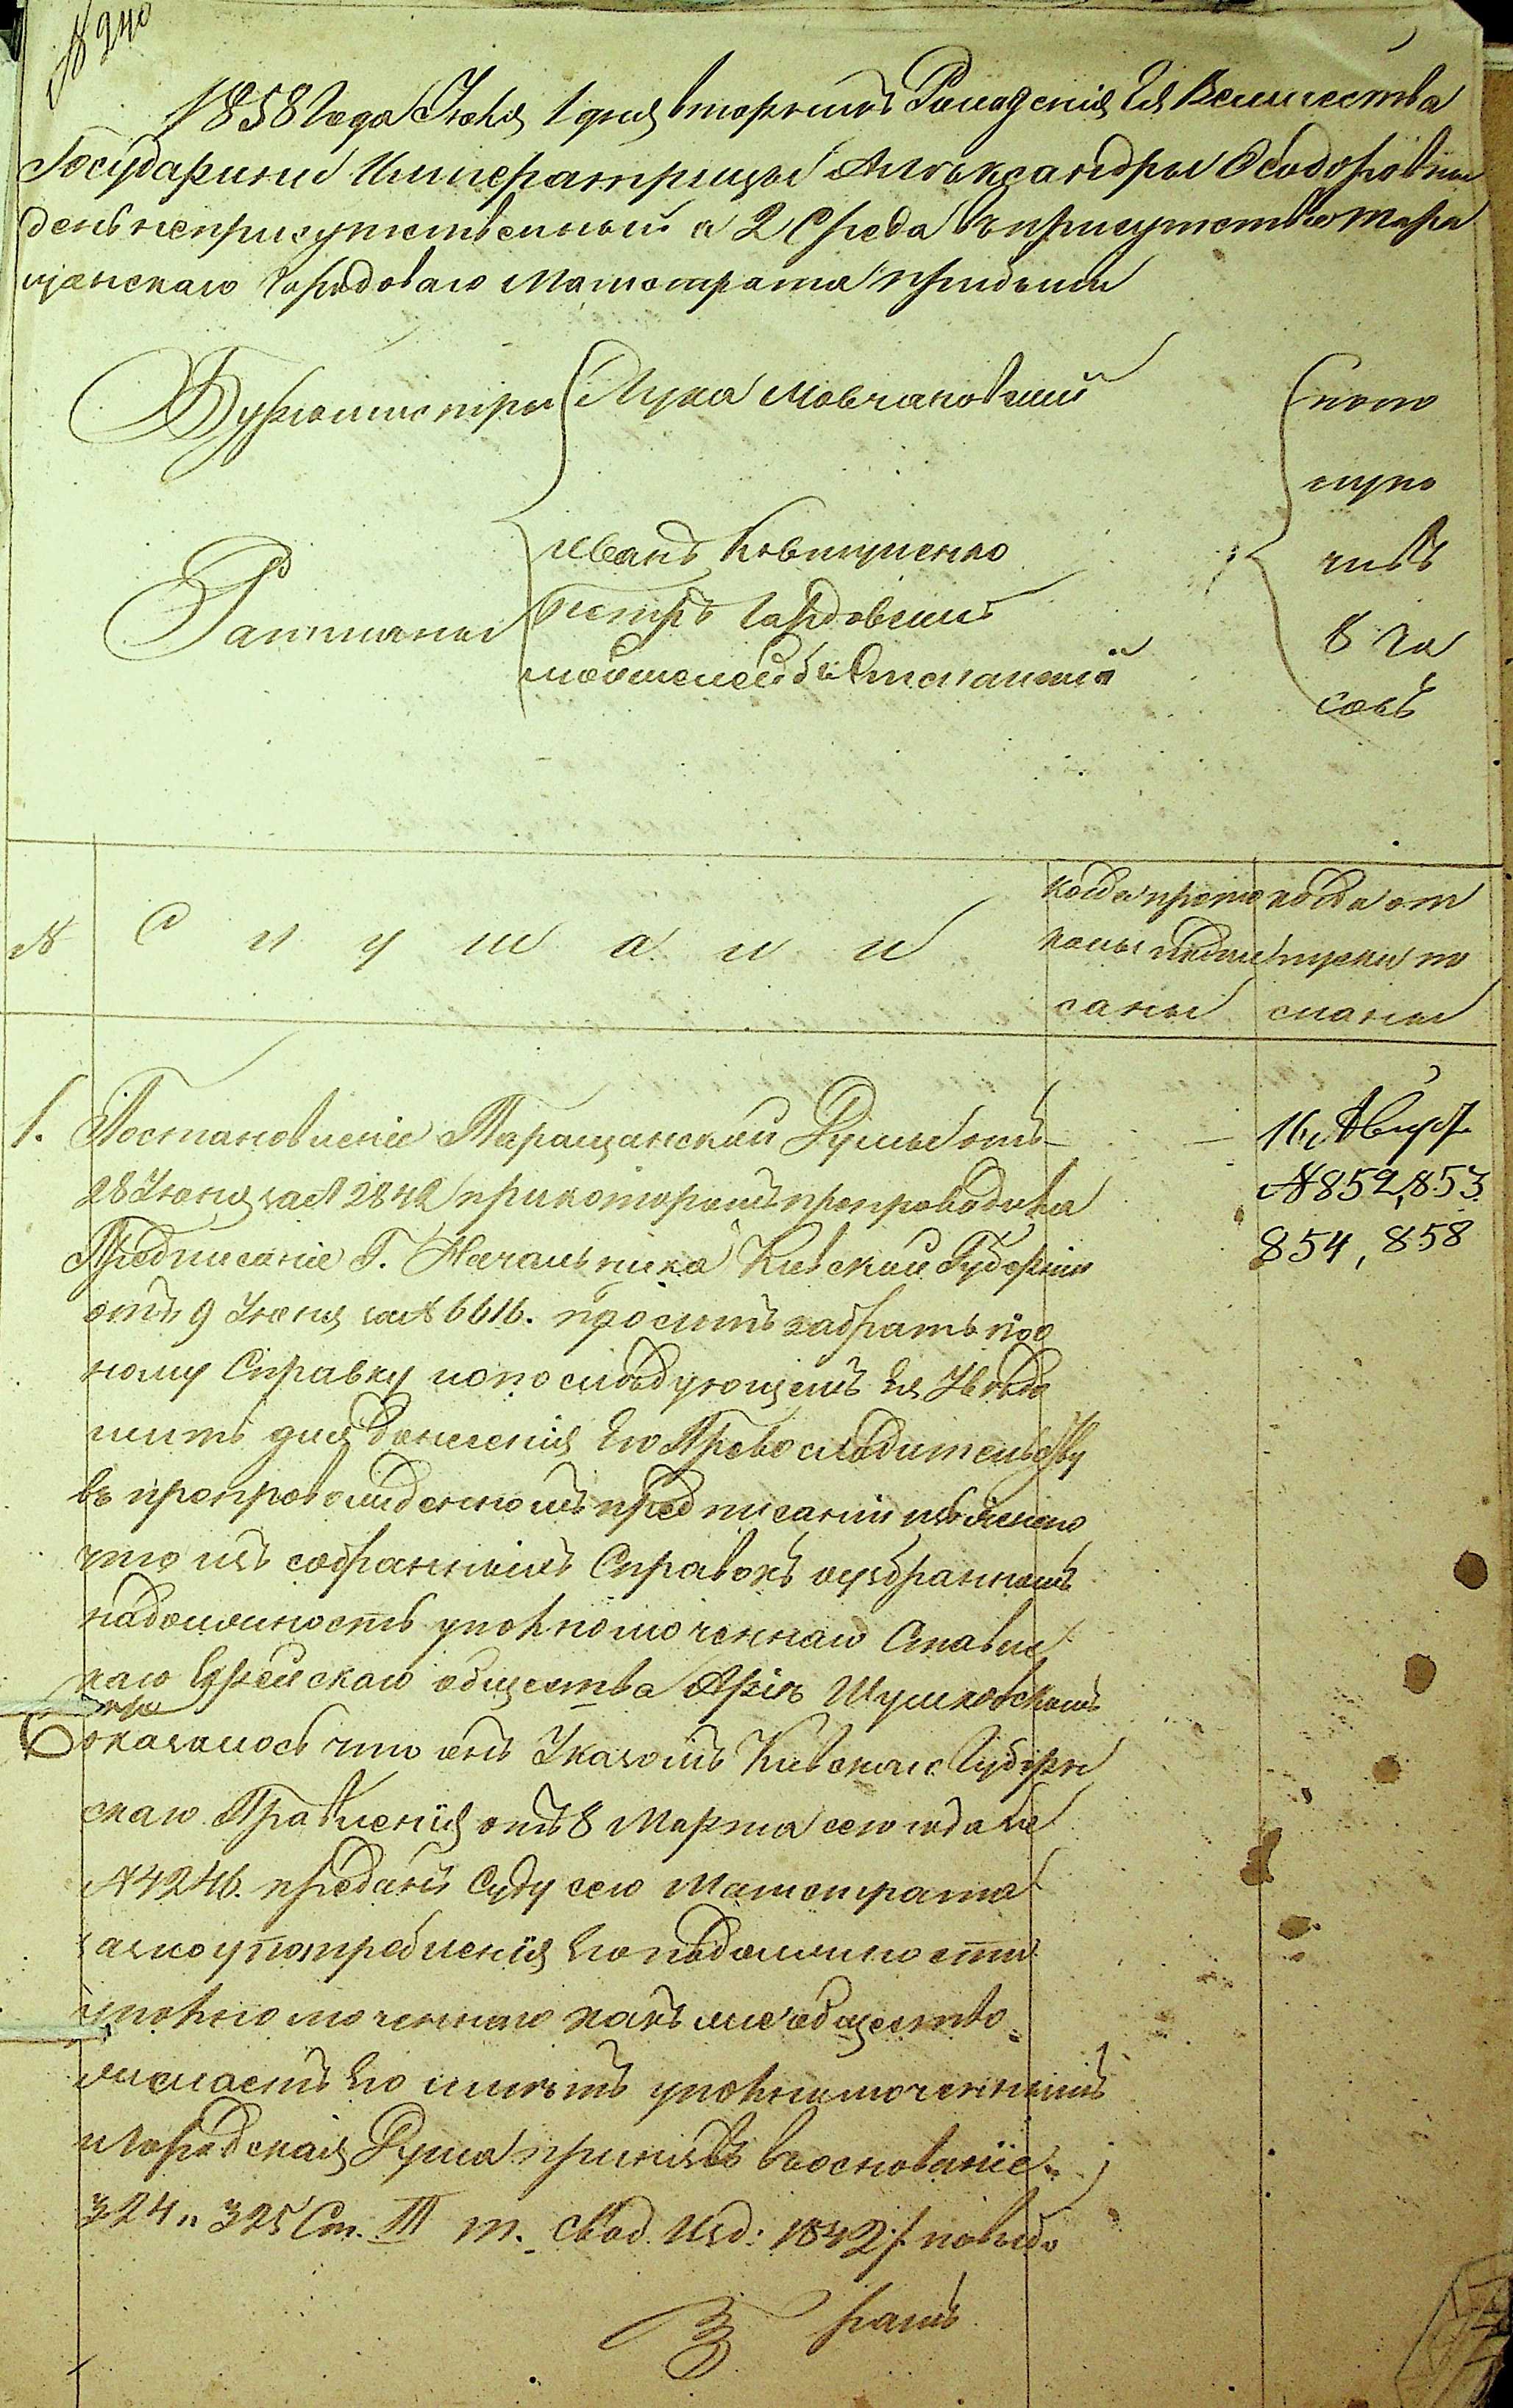 № 240
1858 Года Июля 1 дня вторникъ Рождения Ея Величества
Государини Императрицы Александры Феодоровны
день неприсутственный а 2 Среда въ присутствие Тара
щанскаго Городоваго Магистрата прибыли
Бургомистры Лука Мовчановский
Ратманы Иванъ Ковтуненко
Петръ Гардовский
с поло
луно
чивъ
8 ча
совъ
№ Слушали
когда прото
колы подпи
саны
когда от
пуски по
сланы
1. Постановление Таращанской Думы отъ
28 Июня за № 2842 при которомъ препроводива
Предписание Г. Начальника Киевской Губернии
отъ 9 Июня за № 6616. проситъ забрать пол
ному Справку и о последующемъ Ея Уведо
мить для донесения Его Превосходительству
въ препровожденномъ предписании изъяснено
что изъ собранныхъ Справокъ о избранномъ
на должность уполномоченнаго Ставис
каго Еврейскаго общества Арiе Шумковскомъ
оказалось что онъ Указомъ Киевскаго Губерн
скаго Правления отъ 8 Марта сего года за
№ 4246. преданъ Суду сего Магистрата
за злоупотребления его по должности
уполномоченнаго какъ же общество
желаетъ его иметь уполномоченнымъ
и Городская Дума принявъ въ основание
324 и 325 Ст. III т. Свод. Изд: 1842 г. по выбо
рамъ
16 Август
№ 852, 853
854, 858